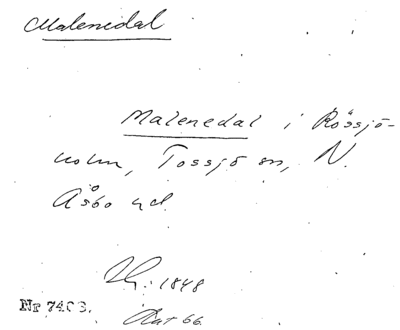 Malenedal
Malenedal i Rössjö-
holm, Tossjö sn, N.
Åsbo hd.
1848
Nr 7403.
66